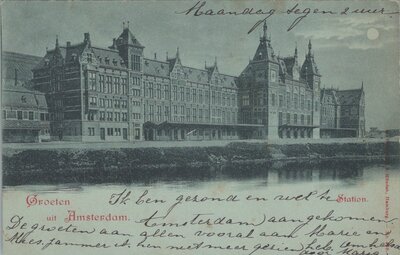 Maandag tegen 2 uur
Groeten
uit Amsterdam.
Station.
Ik ben gezond en wel te
Amsterdam) aangekomen
De groeten aan allen vooral aan Marie en
Mees, jammer ik hen niet meer gezien) heb.
voor Marie